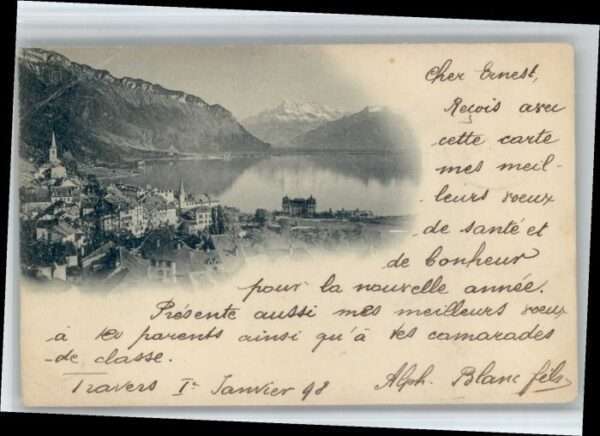 Cher Ernest,
Reçois avec
cette carte
mes meil-
leurs voeux
de santé et
de bonheur
pour la nouvelle année.
Présente aussi mes meilleurs voeux
à tes parents ainsi qu'à tes camarades
de classe.
Travers 1er Janvier 98 Alph. Blanc fils